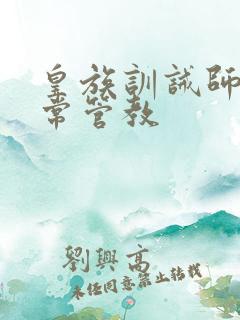 皇族訓誡師
常管教
劉興高
未经同意禁止转载